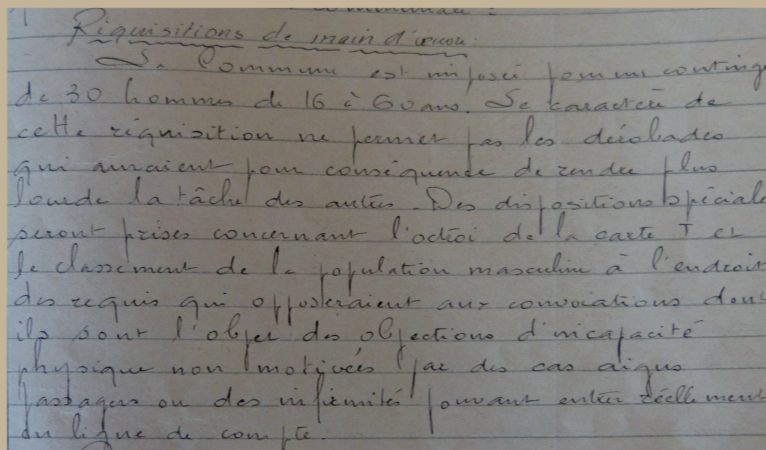 Réquisitions de main d'œuvre.
La Commune est imposée pour un conting
de 30 hommes de 16 à 60 ans. Le caractère de
cette réquisition ne permet pas les dérobades
qui auraient pour conséquence de rendre plus
lourde la tâche des autres. Des dispositions spéciale
seront prises concernant l'octroi de la carte T et
le classement de la population masculine à l'endroit
des requis qui opposeraient aux convocations dont
ils sont l'objet des objections d'incapacité
physique non motivées par des cas aigus
passagers ou des infirmités pouvant entrer réellement
en ligne de compte.